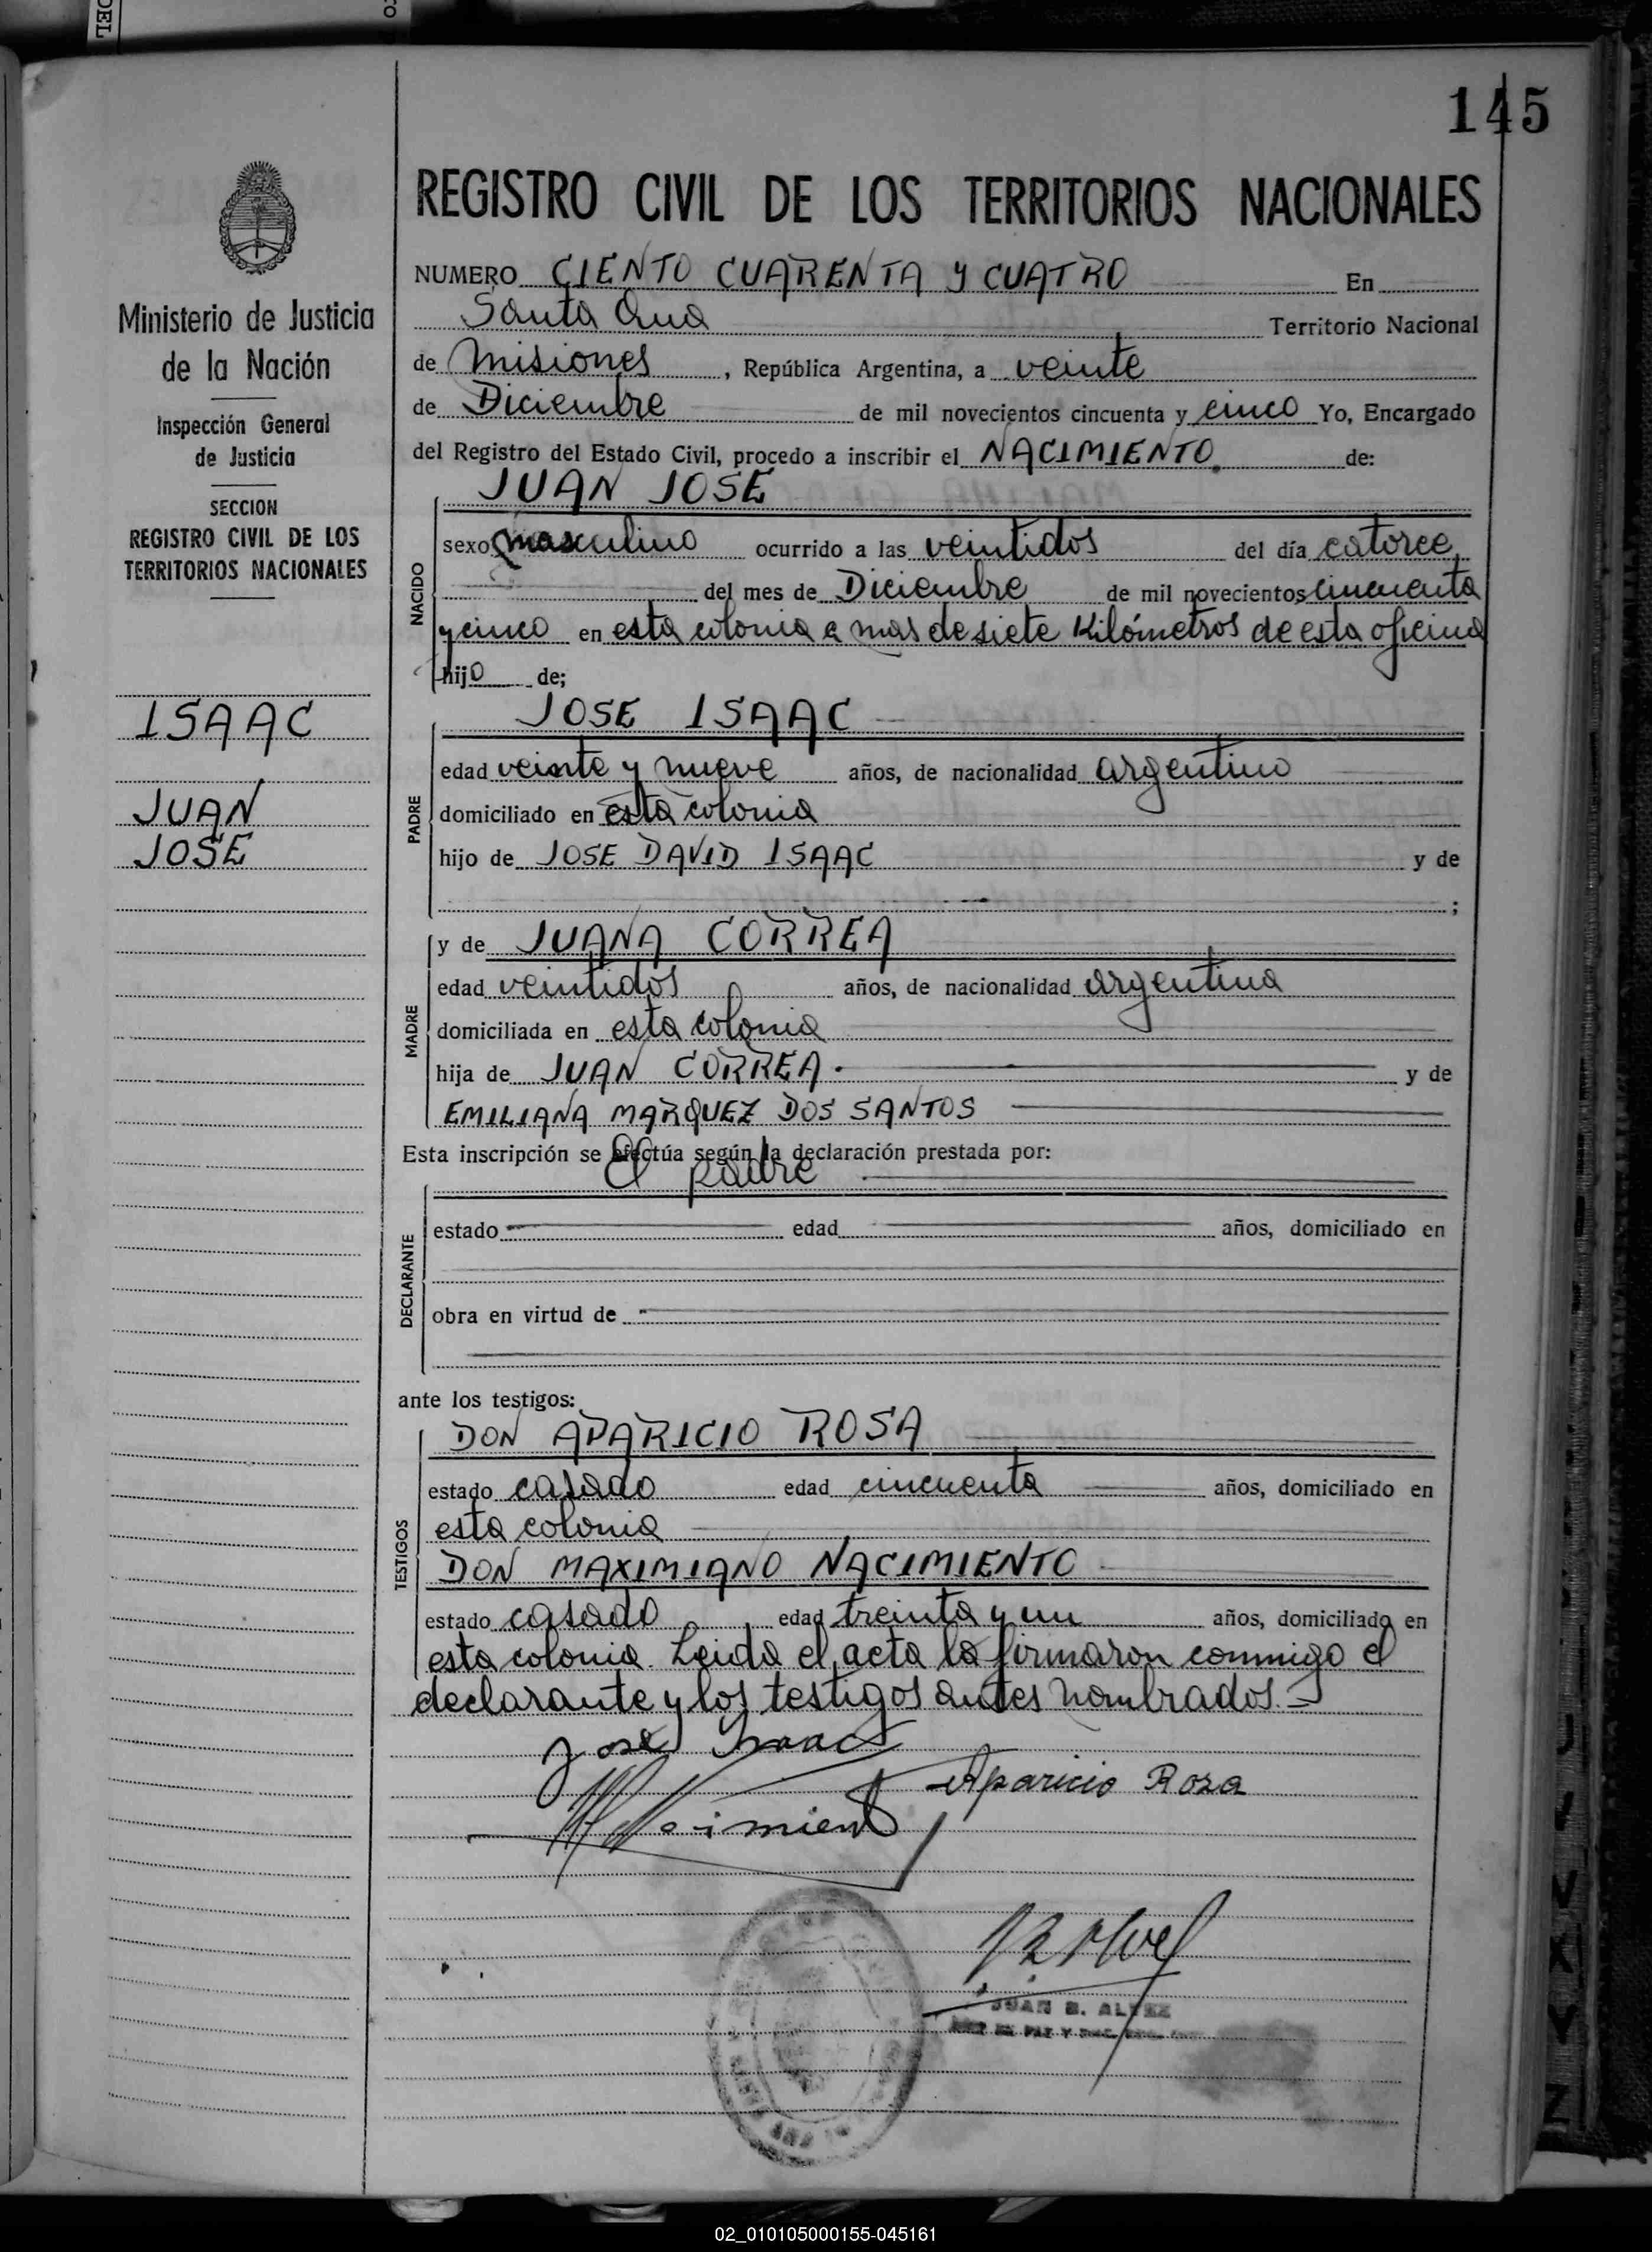 145
REGISTRO CIVIL DE LOS TERRITORIOS NACIONALES
Ministerio de Justicia
de la Nación
Inspección General
de Justicia
SECCION
REGISTRO CIVIL DE LOS
TERRITORIOS NACIONALES
ISAAC
JUAN
JOSE
NUMERO CIENTO CUARENTA Y CUATRO En
Santa Ana Territorio Nacional
de Misiones, República Argentina, a veinte
de Diciembre de mil novecientos cincuenta y cinco Yo, Encargado
del Registro del Estado Civil, procedo a inscribir el NACIMIENTO. de:
NACIDO
JUAN JOSE
sexo masculino ocurrido a las veintidos del día catorce
del mes de Diciembre de mil novecientos cincuenta
y cinco en esta colonia a mas de siete Kilómetros de esta oficina
hijo de;
PADRE
JOSE ISAAC
edad veinte y nueve años, de nacionalidad argentino
domiciliado en esta colonia
hijo de JOSE DAVID ISAAC y de
;
MADRE
y de JUANA CORREA
edad veintidos años, de nacionalidad argentina
domiciliada en esta colonia
hija de JUAN CORREA. y de
EMILIANA MARQUEZ DOS SANTOS
Esta inscripción se efectúa según la declaración prestada por:
DECLARANTE
El padre
estado edad años, domiciliado en
obra en virtud de
ante los testigos:
TESTIGOS
DON APARICIO ROSA
estado casado edad cincuenta años, domiciliado en
esta colonia
DON MAXIMIANO NACIMIENTO
estado casado edad treinta y un años, domiciliado en
esta colonia. Leida el acta la firmaron conmigo el
declarante y los testigos antes nombrados.-
José Isaac
Aparicio Rosa
JUAN B. ALVEZ
02_010105000155-045161